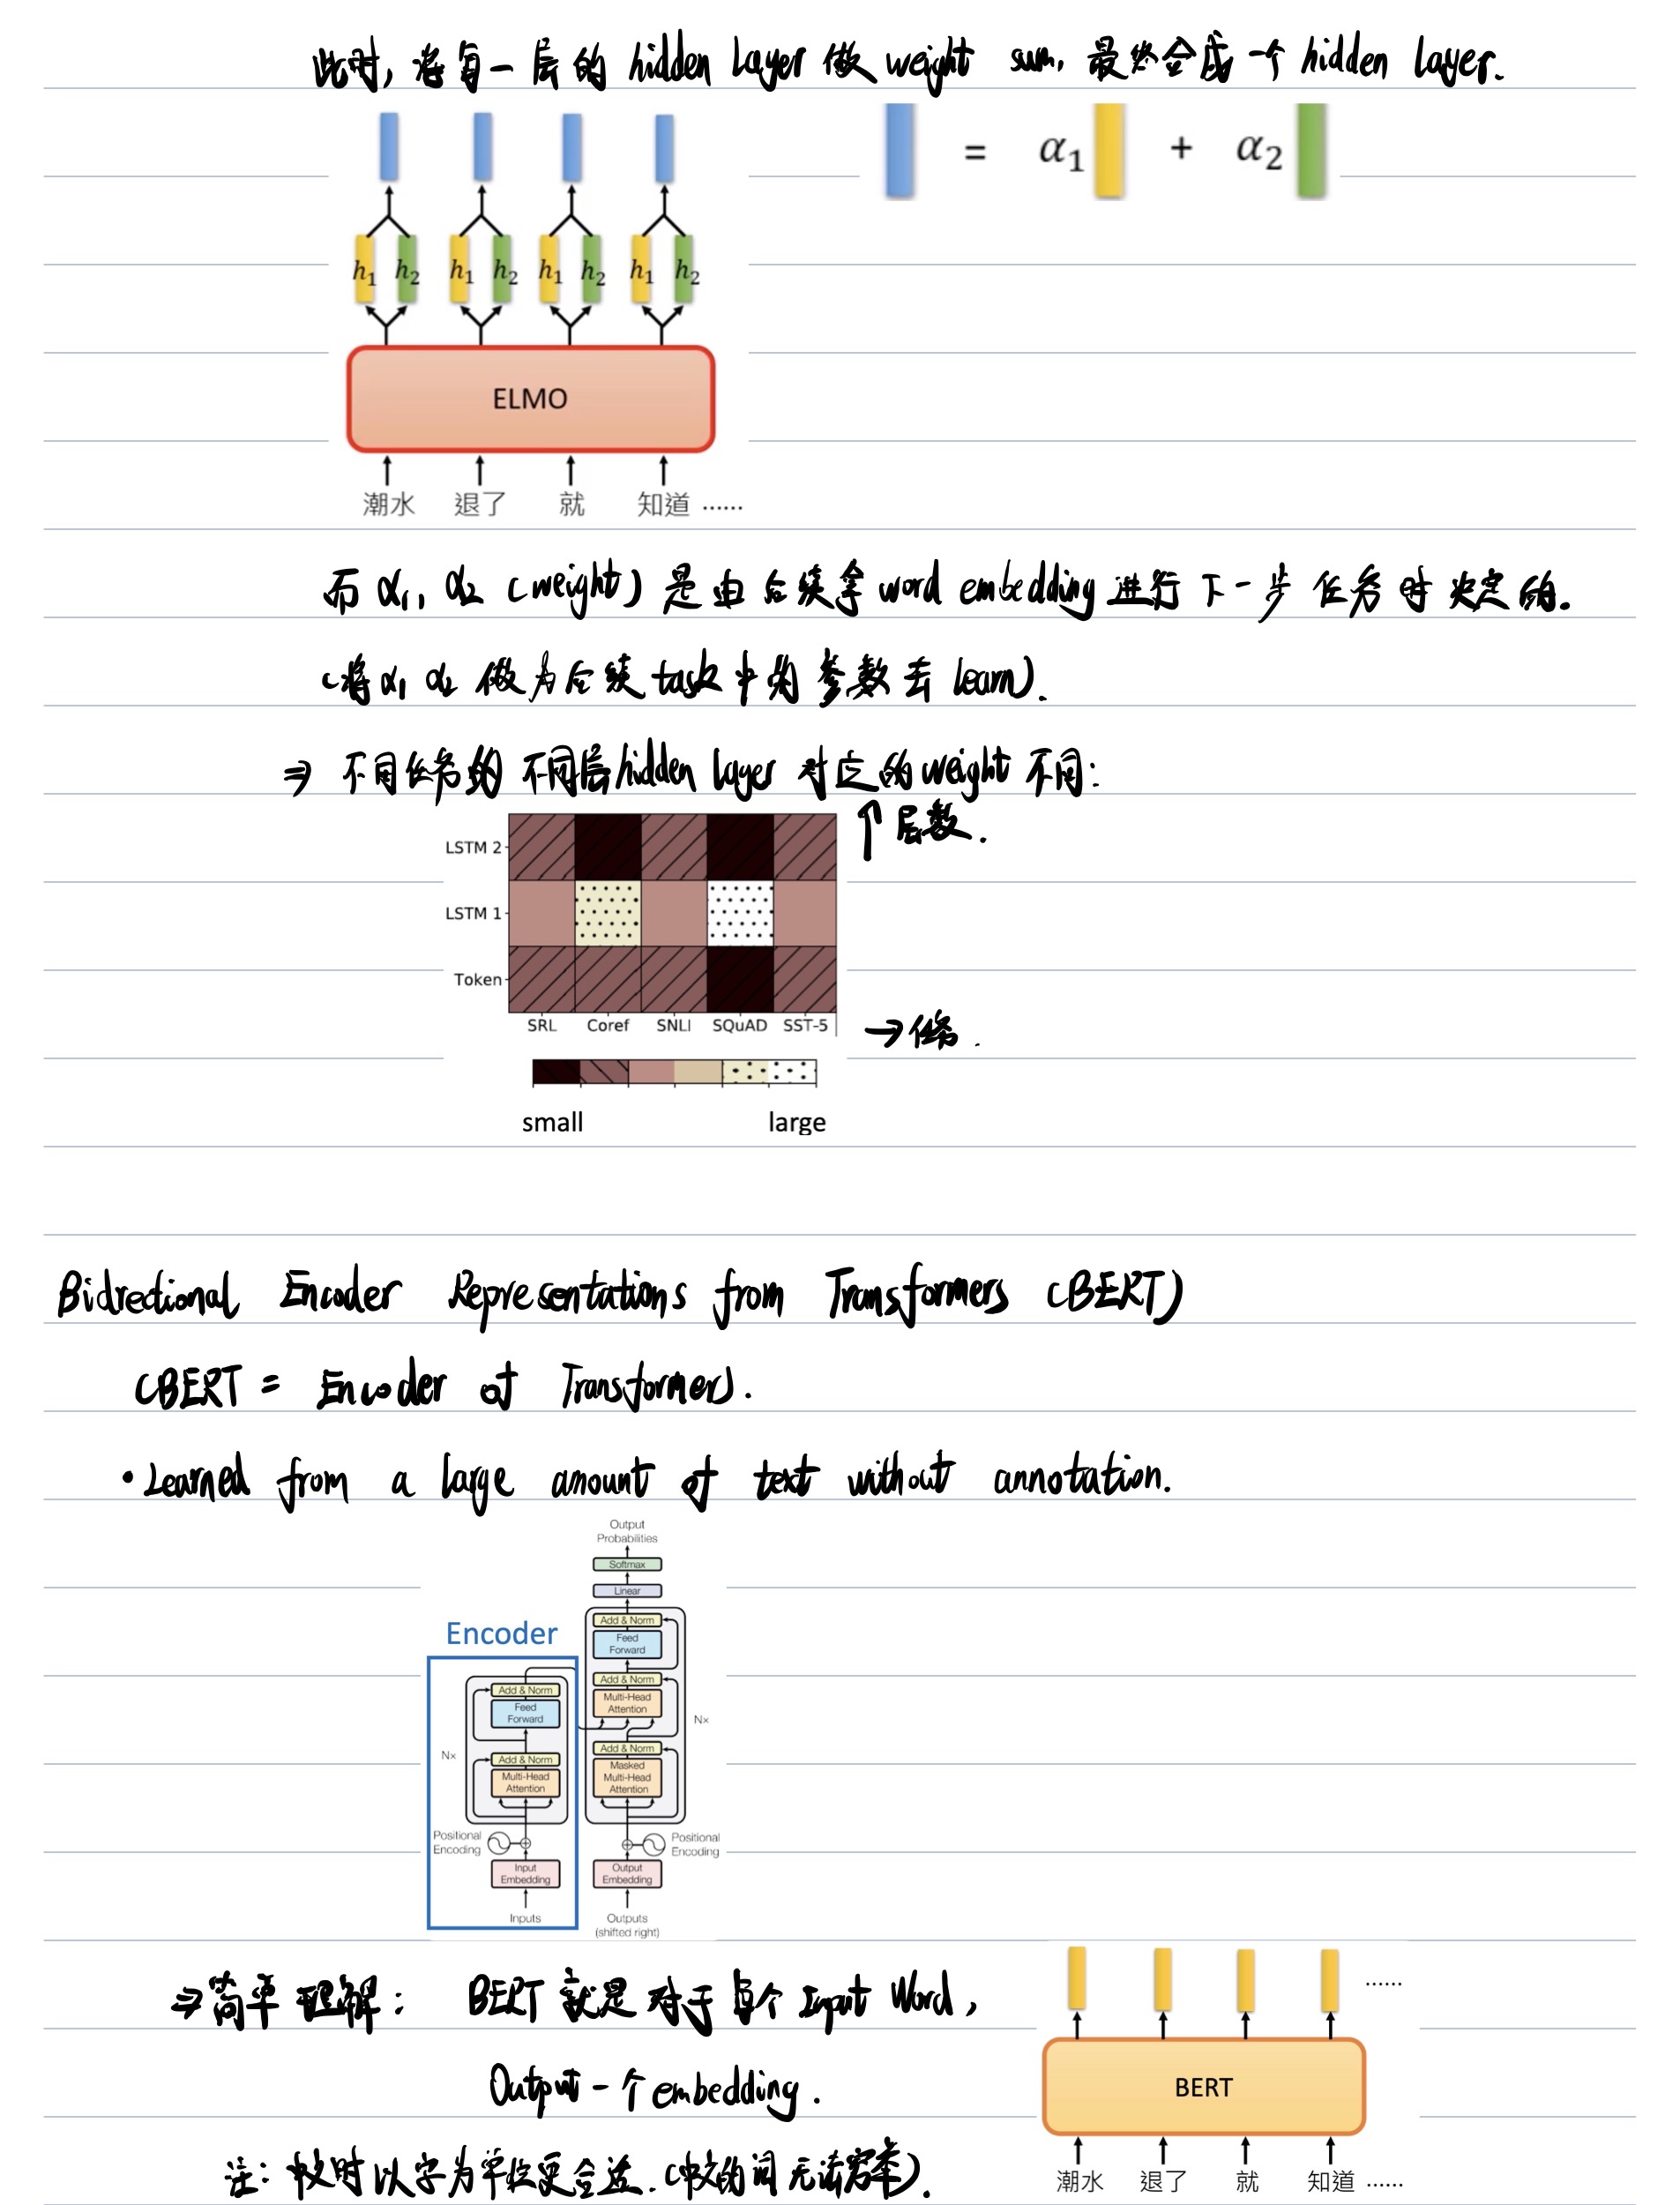 此时, 将每一层的 hidden layer 做 weight sum, 最终合成一个 hidden layer.
= α1 + α2
h1 h2 h1 h2 h1 h2 h1 h2
ELMO
潮水 退了 就 知道 ......
而 α1, α2 (weight) 是由后续拿 word embedding 进行下一步任务时决定的.
(将 α1 α2 做为后续 task 中的参数去 learn).
⇒ 不同任务的 不同层 hidden layer 对应的 weight 不同:
↑ 层数.
LSTM 2
LSTM 1
Token
SRL Coref SNLI SQuAD SST-5
→ 任务.
small large
Bidrectional Encoder Representations from Transformers (BERT)
(BERT = Encoder of Transformer).
• Learned from a large amount of text without annotation.
Output
Probabilities
Softmax
Linear
Add & Norm
Feed
Forward
Add & Norm
Multi-Head
Attention
Nx
Add & Norm
Masked
Multi-Head
Attention
Positional
Encoding
Output
Embedding
Outputs
(shifted right)
Encoder
Add & Norm
Feed
Forward
Nx
Add & Norm
Multi-Head
Attention
Positional
Encoding
Input
Embedding
Inputs
⇒ 简单理解: BERT 就是对于每个 Input Word,
Output 一个 embedding.
......
BERT
潮水 退了 就 知道 ......
注: 中文时以字为单位更合适. (中文的词无法穷举).